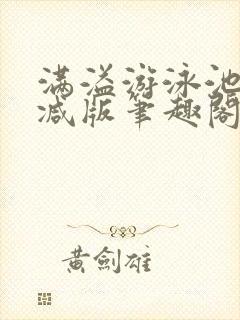 满溢游泳池
减版笔趣阁
黄剑雄